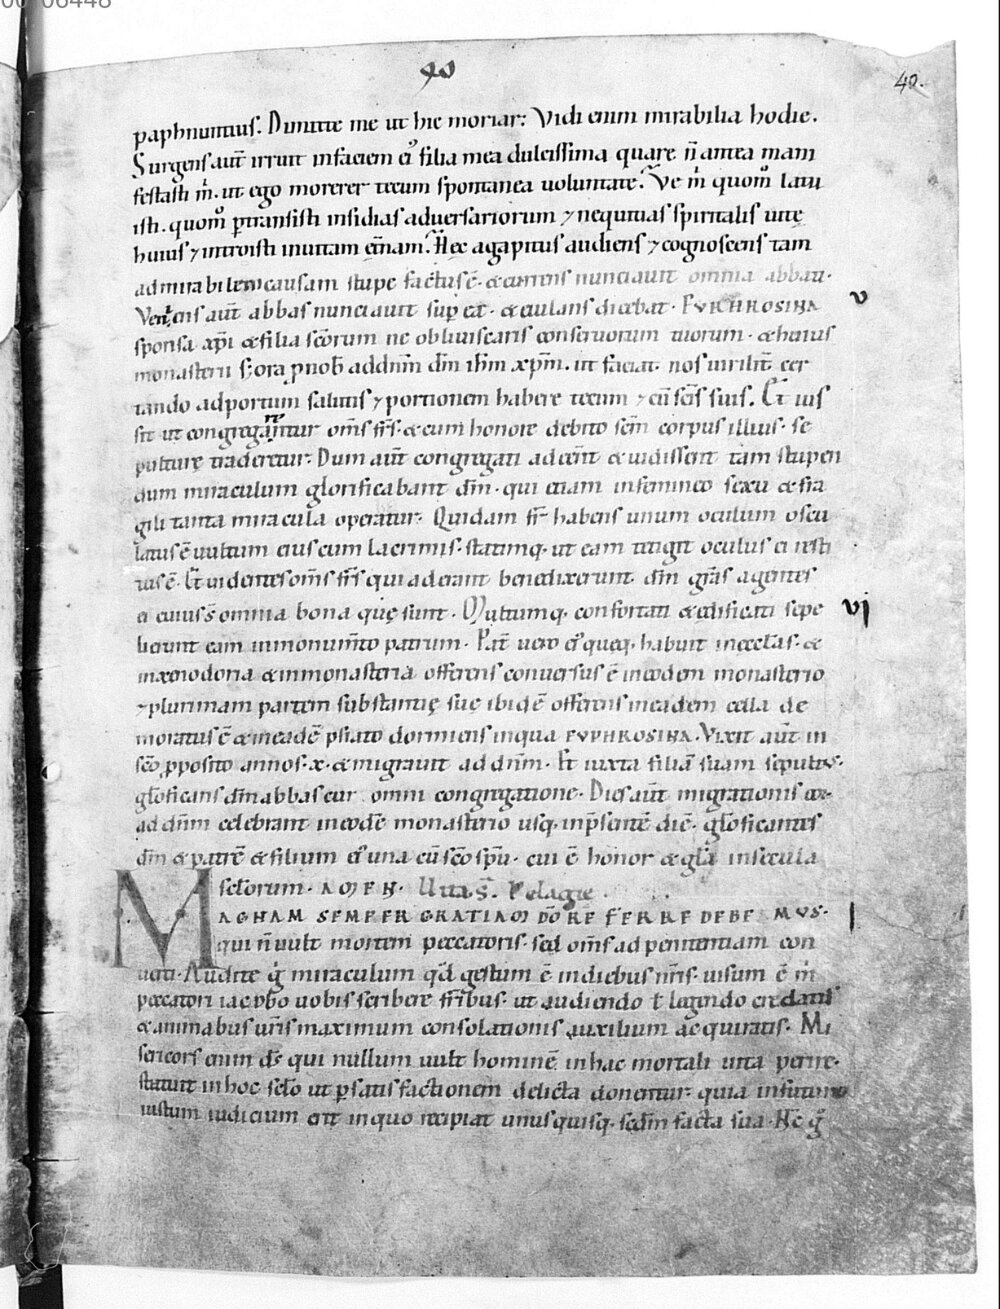 40.
paphnuntius. Dimitte me ut hic moriar: Vidi enim mirabilia hodie.
Surgens aut̄ irruit infaciem ei᷒ filia mea dulcissima quare n̄ antea mani
festasti m̄. ut ego morerer tecum spontanea voluntate. Ve m̄ quom̊ latu
isti. quom̊ ꝑtransisti insidias adversariorum ⁊ nequitias spiritalis vitę
huius ⁊ introisti inuitam et̄nam. Hęc agapitus audiens ⁊ cognoscens tam
admirabilem causam stupefactus ē. & currens nunciauit omnia abbati.
Veniens aut̄ abbas nunciauit sup eā. & eiulans dicebat. EVPHROSINA
v
sponsa xp̄i & filia sc̄orum ne obliuiscaris conseruorum tuorum. & huius
monasterii s; ora ꝓ nob̄ ad dn̄m dm̄ ih̄m xp̄m. ut faciat nos uirilit̄ cer
tando ad portum salutis ⁊ portionem habere tecum ⁊ cū sc̄is suis. Et ius
sit ut congregarentur om̄s fr̄s. & cum honore debito sc̄m corpus illius. se
pulturę traderetur. Dum aut̄ congregati adeēnt & uidissent tam stupen
dum miraculum glorificabant dm̄. qui etiam infemineo sexu & fra
gili tanta miracula operatur. Quidam fr̄ habens unum oculum oscu
latus ē uultum eius cum lacrimis. statimq. ut eam tetigit oculus ei resti
tus ē. Et uidentes om̄s fr̄s qui aderant benedixerunt dm̄ gr̄as agentes
ei cuius s̄ omnia bona quę sunt. Multumq. confortati & edificati sepe
vi
lierunt eam inmonum̄to patrum. Pat̄ uero ei᷒ queq. habuit inęccl̄as. &
inxenodoria & inmonasteria offerens conuersus ē ineodem monasterio
⁊ plurimam partem substantię suę ibidē offerens ineadem cella de
moratus ē & ineadē psiato dormiens inqua EVPHROSINA. Vixit aut̄ in
sc̄o ꝓposito annos. x. & migrauit ad dn̄m. Et iuxta filiā suam sepultus.
glorificans dm̄ abbas cum omni congregatione. Dies aut̄ migrationis eor.
ad dn̄m celebrant ineodē monasterio usq. inp̄sentē diē. glorificantes
dm̄ & patrē & filium ei᷒ una cū sc̄o sp̄u. cui ē honor & gl̄a insęcula
sęc̄lorum. AMEN. Uita s̄. Pelagie
MAGNAM SEMPER GRATIAM DŌ REFERRE DEBEMVS.
qui n̄ uult mortem peccatoris. sed om̄s ad penitentiam con
uerti. Audite g̊ miraculum qd̄ gestum ē indiebus nr̄is. uisum ē m̄
peccatori iacobo uobis scribere fr̄ibus. ut audiendo ł legendo credatis
& animabus ur̄is maximum consolationis auxilium acquiratis. Mi
sericors enim ds̄ qui nullum uult hominē in hac mortali uita perire.
statuit in hoc sc̄lo ut ꝑ satisfactionem delicta donentur. quia infuturo
iustum iudicium erit in quo recipiat unusquisq. scd̄m facta sua. Nc̄ g̊